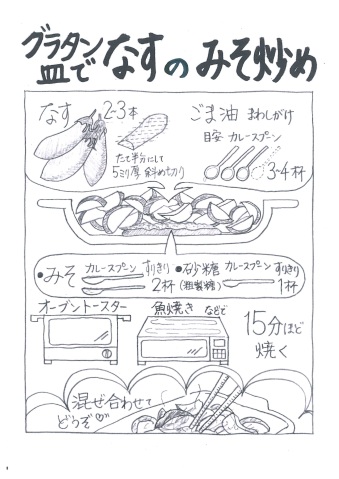 グラタン皿で なすの みそ炒め
なす 2-3本
たて半分にして
5ミリ厚 斜め切り
ごま油 まわしがけ
目安 カレースプーン
3~4杯
・みそ カレースプーン すりきり 2杯
・砂糖 (粗製糖) カレースプーン すりきり 1杯
オーブントースター
魚焼き などで
15分ほど
焼く
混ぜ合わせて
どうぞ♡